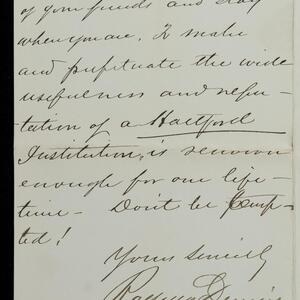 of your friends and stay
where you are. To make
and perpetuate the wide
usefulness and repu-
tation of a Hartford
Institution, is renown
enough for one life-
time - Don't be temp-
ted!
Yours sincerely